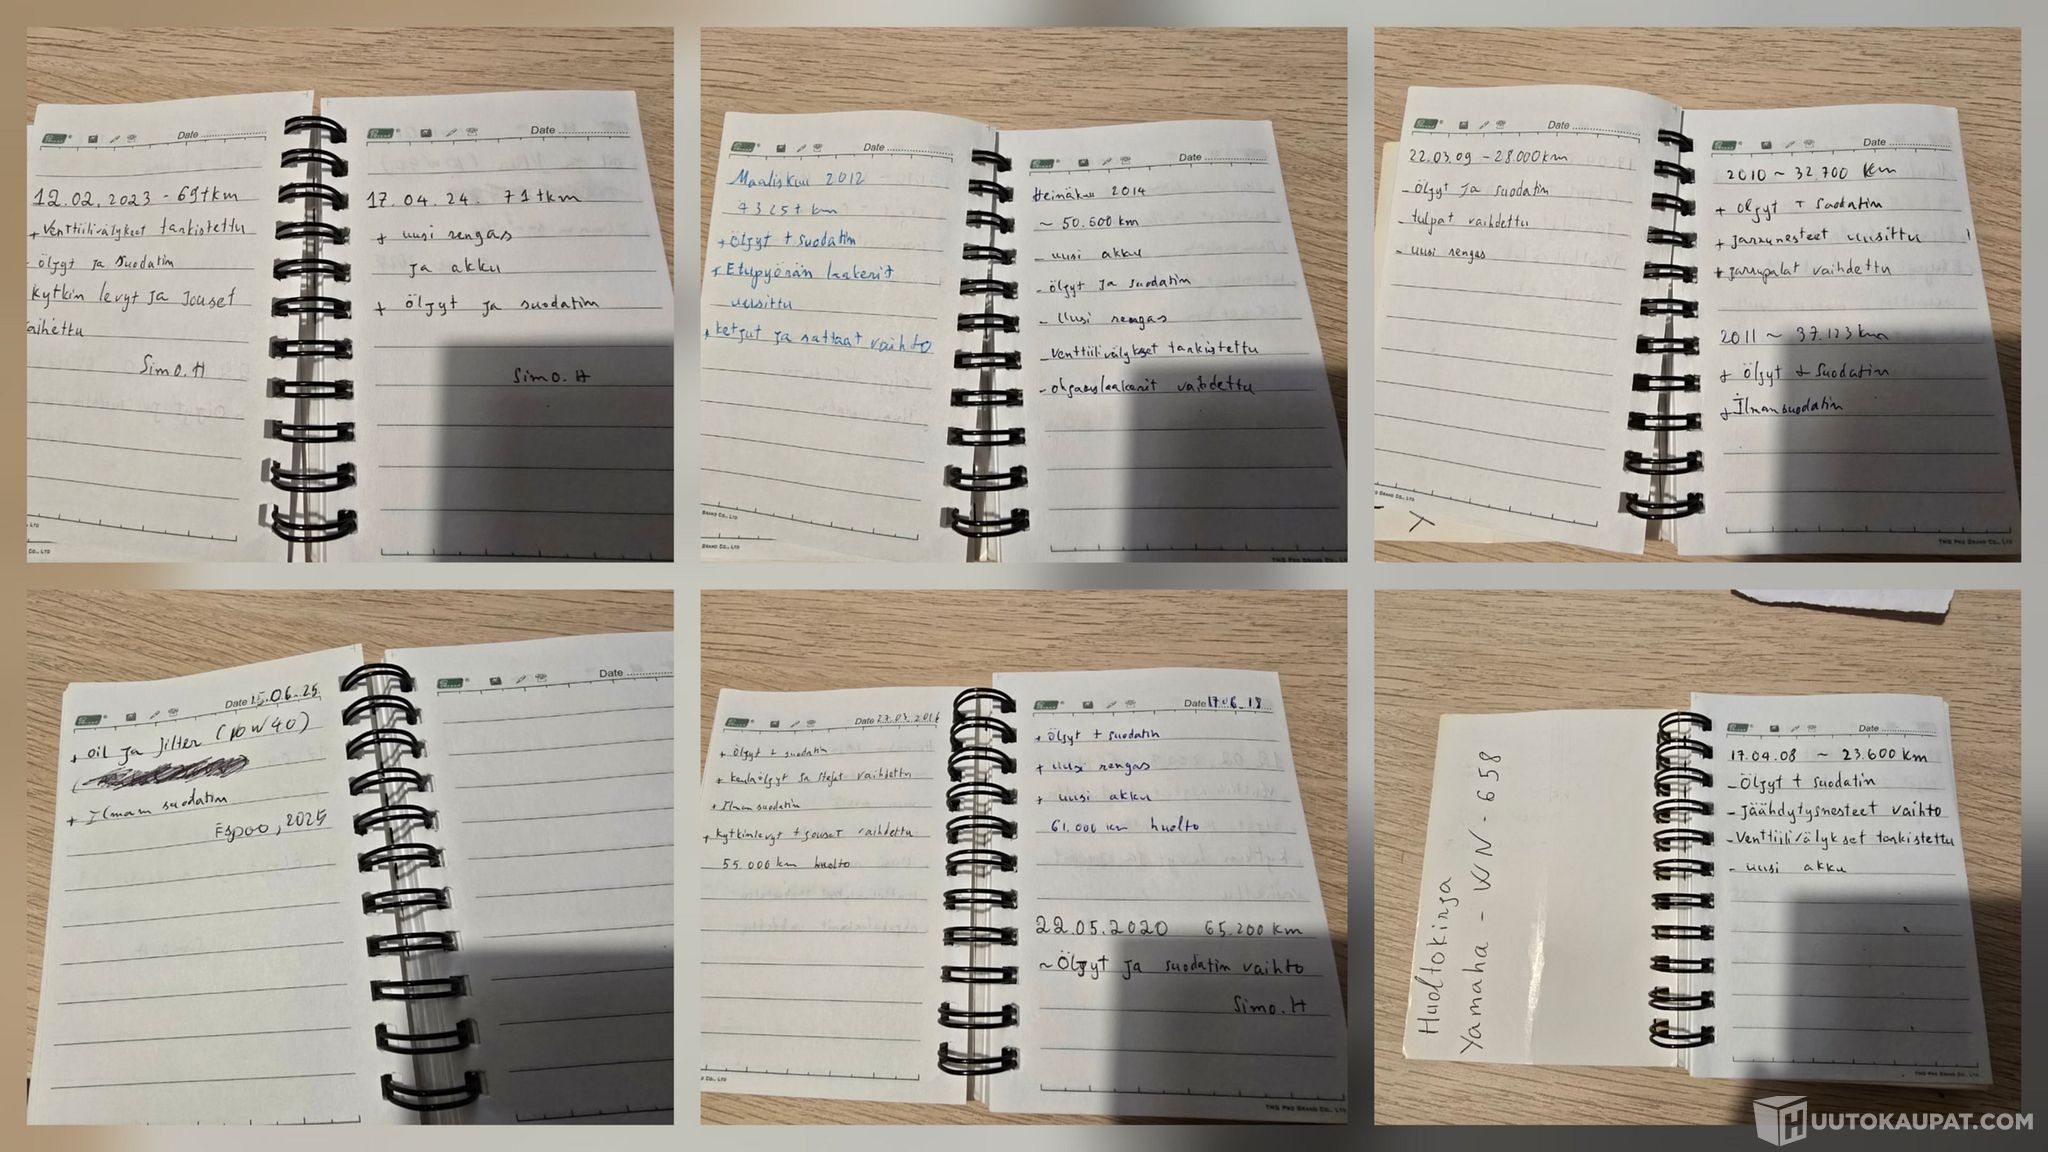 Date
12.02.2023 - 69tkm
+ Venttiilivälykset tarkistettu
- öljyt ja suodatin
Kytkin levyt ja jouset
aihettu
Simo.H
CO., LTD
Date
17.04.24. 71tkm
+ uusi rengas
ja akku
+ öljyt ja suodatin
Simo.H
Date
Maaliskuu 2012
4325t km
+ öljyt + suodatin
+ Etupyörän laakerit
uusittu
+ ketjut ja rattaat vaihto
BRAND CO., LTD
Date
Heinäkuu 2014
~ 50.600km
- uusi akku
- öljyt ja suodatin
- Uusi rengas
- Venttiilivälykset tarkistettu
- ohjauslaakerit vaihdettu
Date
22.03.09 - 28.000km
- öljyt ja suodatin
- tulpat vaihdettu
- uusi rengas
Date
2010 ~ 32.700 km
+ öljyt + suodatin
+ jarrunesteet uusittu
+ jarrupalat vaihdettu
2011 ~ 37.123km
+ öljyt + suodatin
+ Ilmansuodatin
TWS PRO BRAND CO., LTD
Date 15.06.25
+ oil ja filter (10W40)
+ Ilman suodatin
Espoo, 2025
Date
Date 27.03.2016
+ öljyt + suodatin
vaihdettu
+ Ilmansuodatin
+ kytkinlevyt + jouset vaihdettu
55.000km huolto
CO., LTD
Date 17.06.18
+ öljyt + suodatin
+ uusi rengas
+ uusi akku
61.000 km huolto
22.05.2020 65.200km
~ Öljyt ja suodatin vaihto
Simo.H
TWS PRO BRAND CO., LTD
Huoltokirja
Yamaha - WN-658
Date
17.04.08 ~ 23.600km
- Öljyt + suodatin
- Jäähdytysnesteet vaihto
- Venttiilivälykset tarkistettu
- uusi akku
TWS PRO BRAND CO., LTD
HUUTOKAUPAT.COM